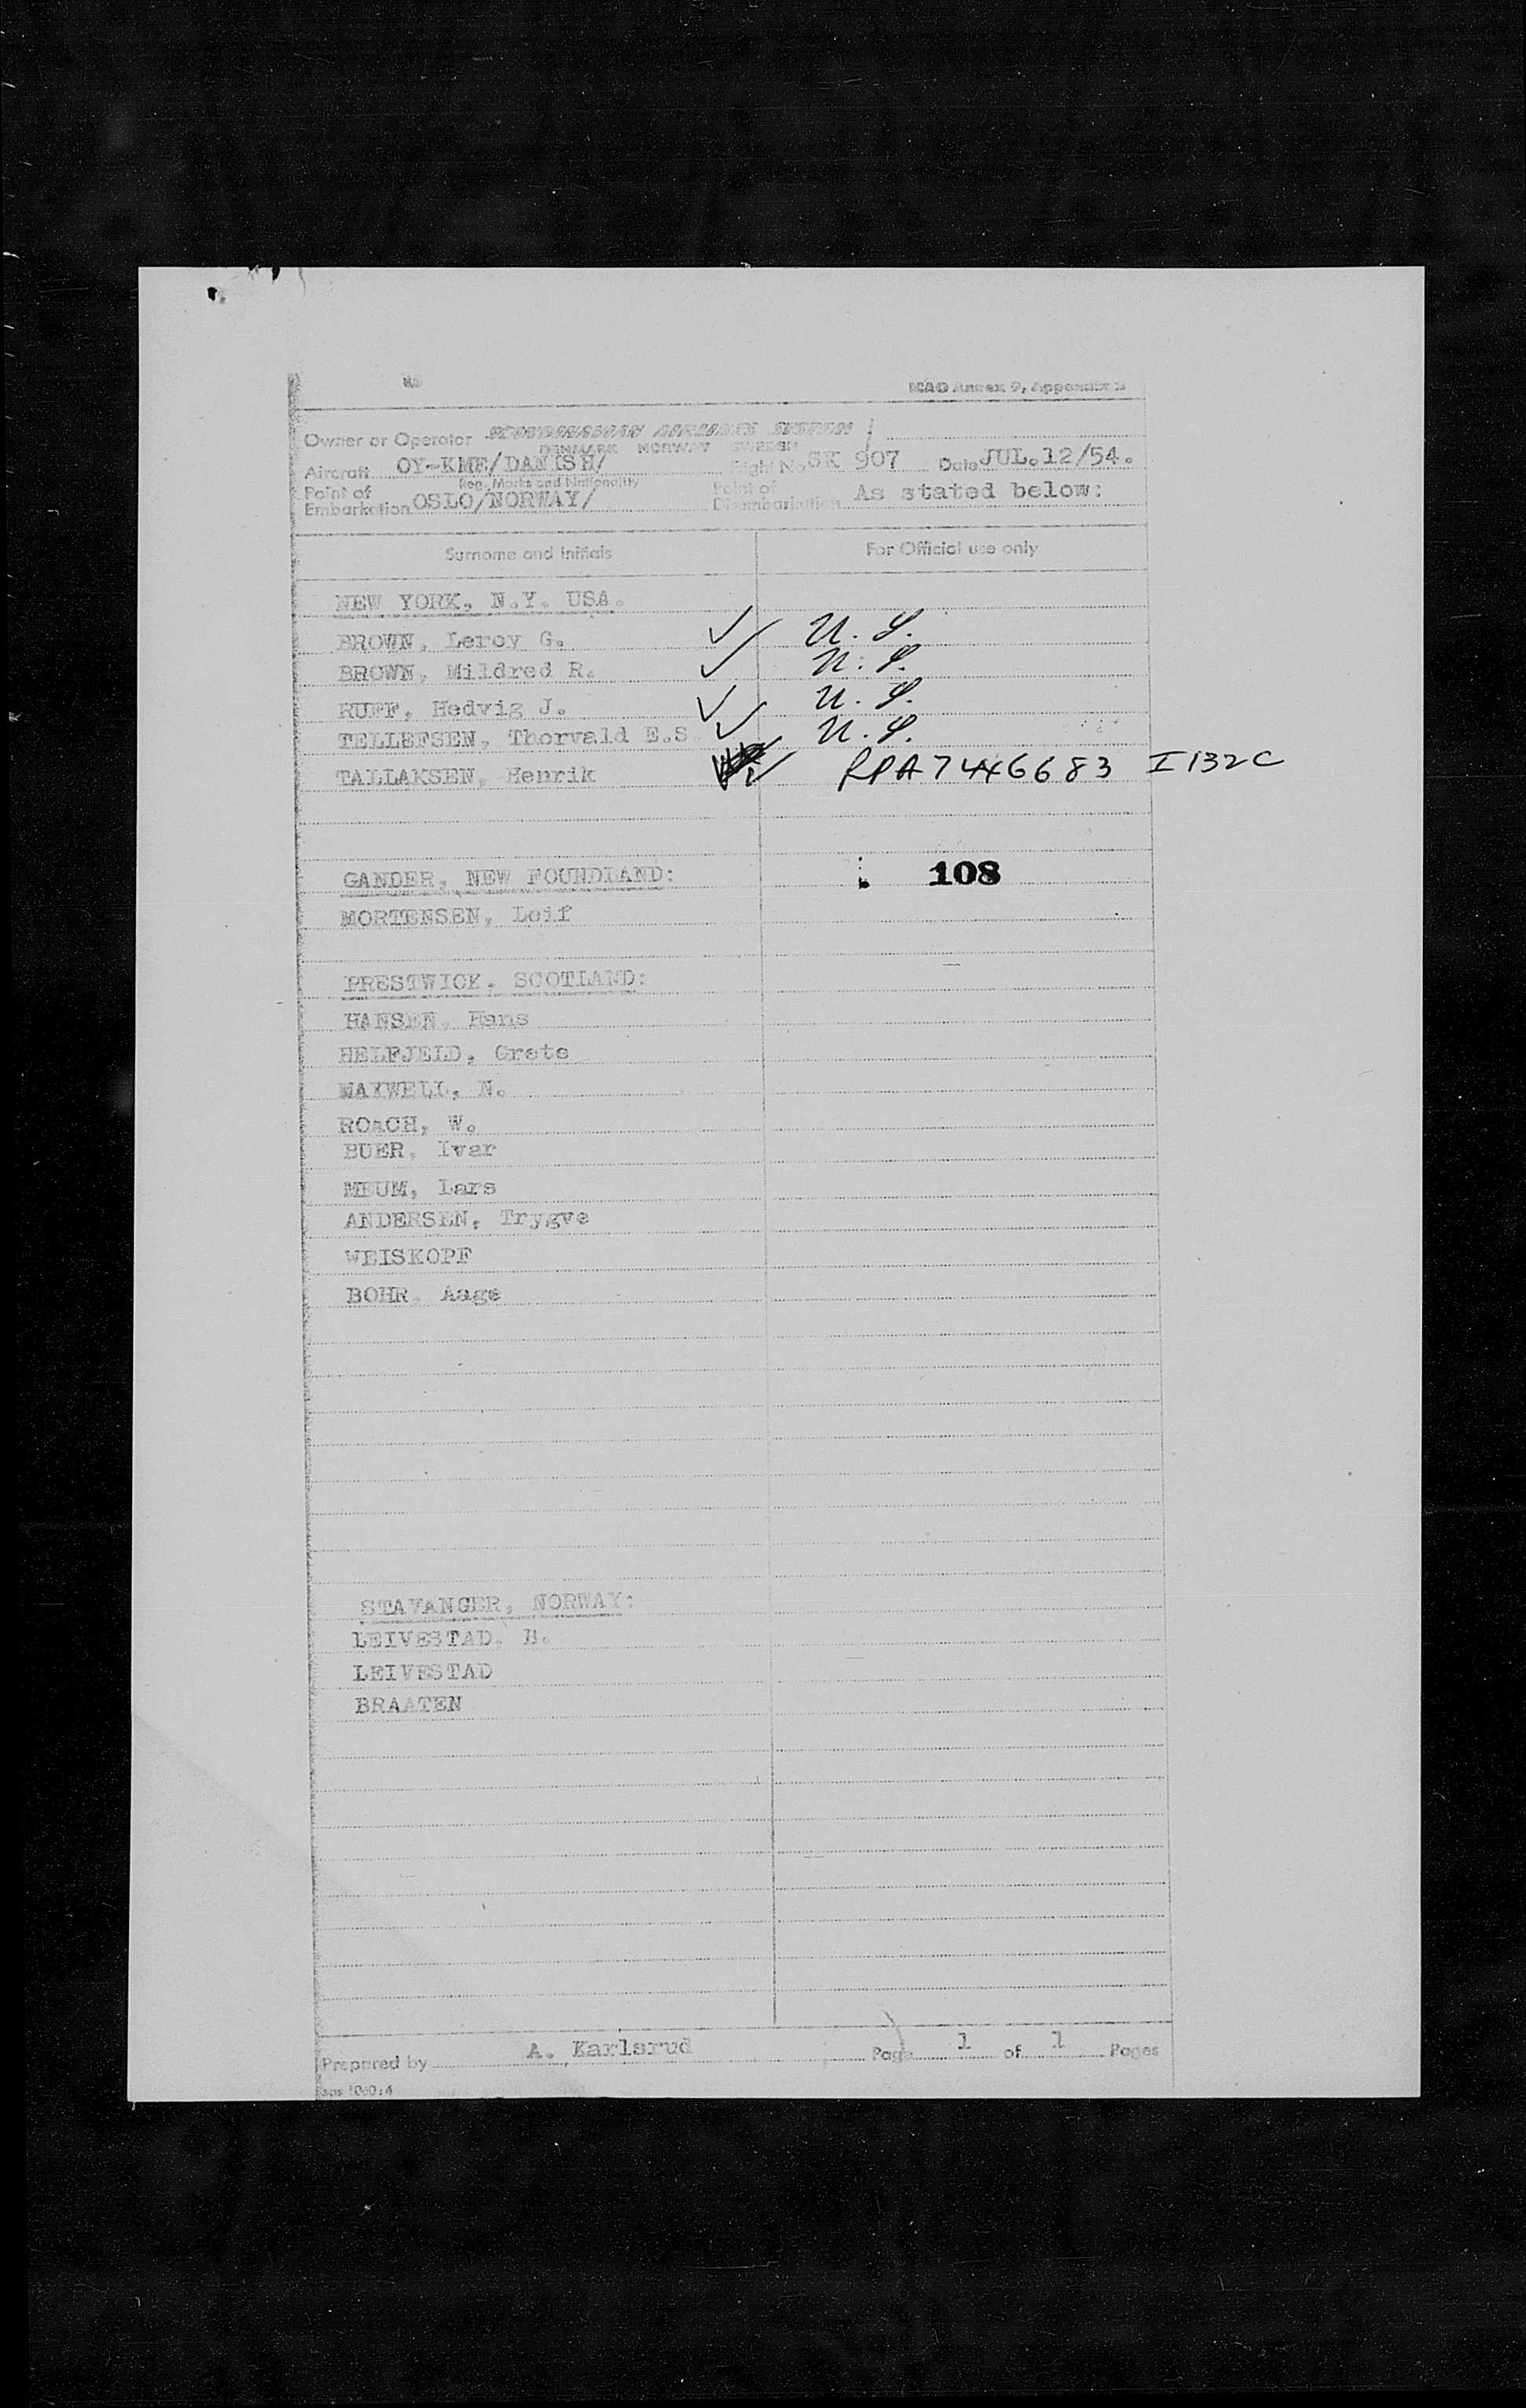 ICAO Annex 9, Appendix 3
Owner or Operator SCANDINAVIAN AIRLINES SYSTEM
DENMARK NORWAY SWEDEN
Aircraft OY-KME/DANISH/ Flight No SK 907 Date JUL.12/54.
Reg. Marks and Nationality
Point of Embarkation OSLO/NORWAY/ Point of Disembarkation As stated below:
Surname and Initials For Official use only
NEW YORK, N.Y. USA.
BROWN, Leroy G. ✓ U.S.
BROWN, Mildred R. ✓ U.S.
RUFF, Hedvig J. ✓ U.S.
TELLEFSEN, Thorvald E.S. ✓ U.S.
TALLAKSEN, Henrik ✓ RPA7446683 I132C
GANDER, NEW FOUNDLAND: 108
MORTENSEN, Leif
PRESTWICK, SCOTLAND:
HANSEN, Hans
HELFJELD, Grete
MAXWELL, N.
ROACH, W.
BUER, Ivar
MEUM, Lars
ANDERSEN, Trygve
WEISKOPF
BOHR, Aage
STAVANGER, NORWAY:
LEIVESTAD, B.
LEIVESTAD
BRAATEN
Prepared by A. Karlsrud Page 1 of 1 Pages
1060:4